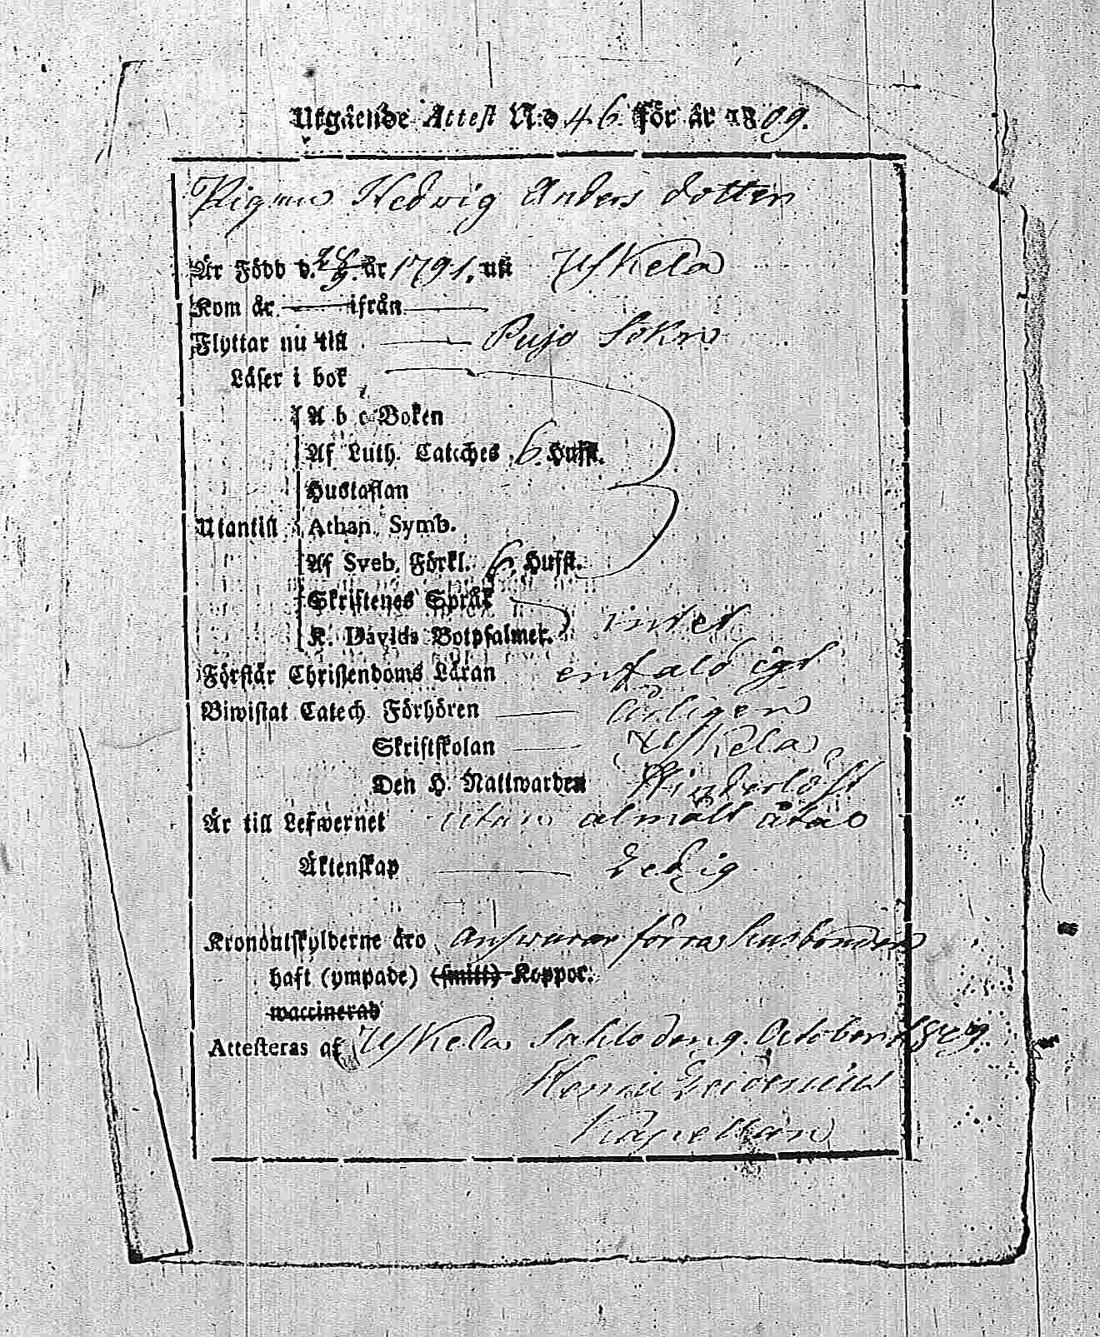 Utgående Attest N:o 46. för år 1809.
Pigan Hedvig Anders dotter
Är Född d. år 1791. uti Uskela
Kom år ifrån
Flyttar nu till Pujo Sokn
Läser i bok
A b c Boken
Af Luth. Catéches 6. Hufst.
Hustaflan
Utantill Athan. Symb.
Af Sveb. Förkl. 6 Hufst.
Skriftenes Språk
K. Davids Botpsalmer. intet
Förstår Christendoms Läran enfaldigt
Biwistat Catech. Förhören Årligen
Skriftskolan Uskela
Den H. Nattwarden Hinderlöst
Är till Lefwernet utan almält åtal
Äktenskap Ledig
Kronoutskylderne äro answarar förra husbonden
haft (ympade) (smitt) Koppor.
waccinerad
Attesteras af Uskela Sahlo den 9. October 1809.
Kapellan